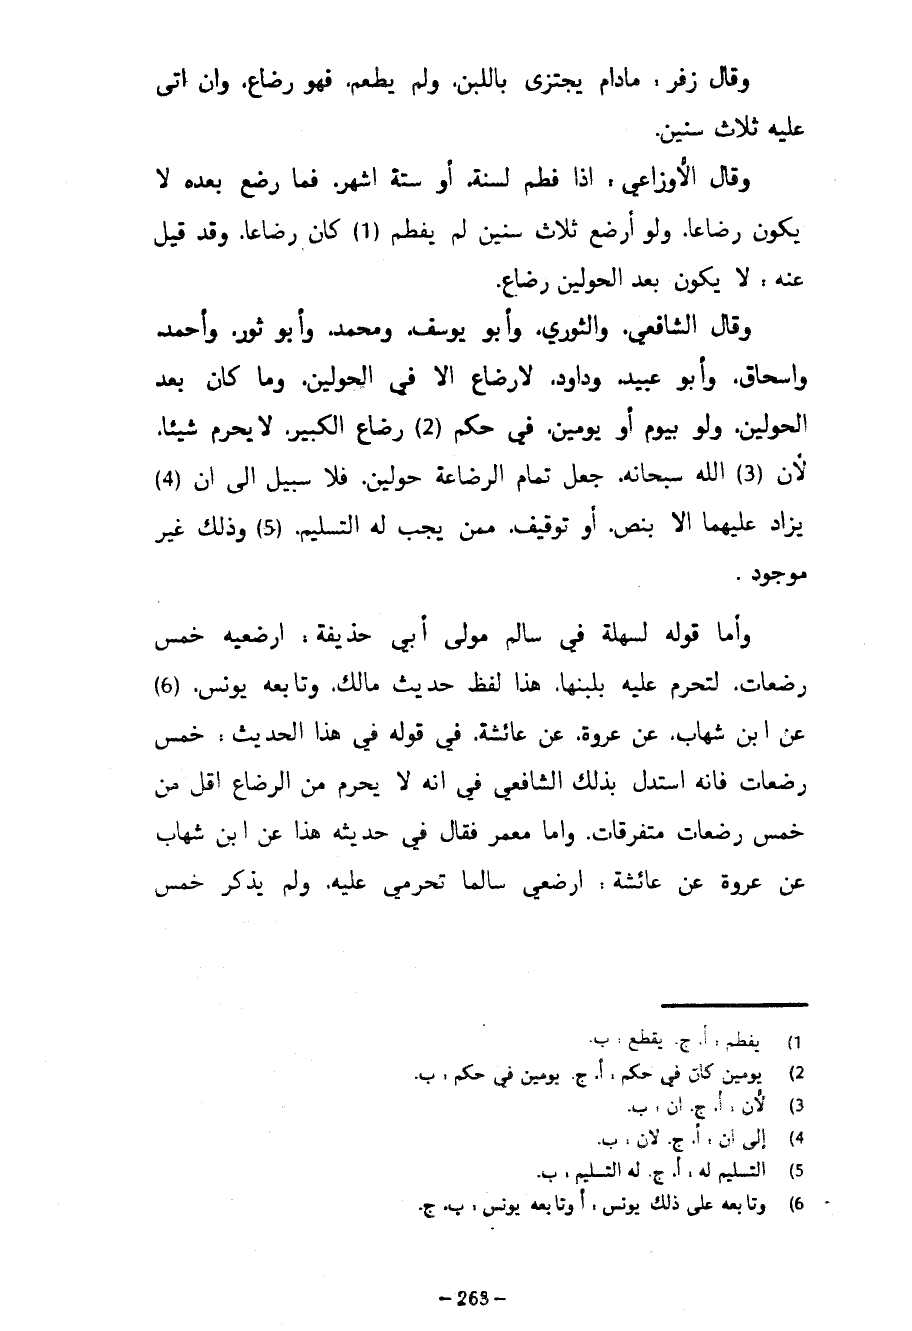 وقال زفر : مادام يجتزى باللبن، ولم يطعم، فهو رضاع، وان اتى
عليه ثلاث سنين.
وقال الأوزاعي : اذا فطم لسنة، أو ستة اشهر، فما رضع بعده لا
يكون رضاعا، ولو أرضع ثلاث سنين لم يفطم (1) كان رضاعا، وقد قيل
عنه : لا يكون بعد الحولين رضاع.
وقال الشافعي، والثوري، وأبو يوسف، ومحمد، وأبو ثور، وأحمد،
واسحاق، وأبو عبيد، وداود، لارضاع الا في الحولين، وما كان بعد
الحولين، ولو بيوم أو يومين، في حكم (2) رضاع الكبير، لا يحرم شيئا،
لأن (3) الله سبحانه، جعل تمام الرضاعة حولين، فلا سبيل الى ان (4)
يزاد عليهما الا بنص، أو توقيف، ممن يجب له التسليم، (5) وذلك غير
موجود .
وأما قوله لسهلة في سالم مولى أبي حذيفة : ارضعيه خمس
رضعات، لتحرم عليه بلبنها، هذا لفظ حديث مالك، وتابعه يونس، (6)
عن ابن شهاب، عن عروة، عن عائشة، في قوله في هذا الحديث : خمس
رضعات فانه استدل بذلك الشافعي في انه لا يحرم من الرضاع اقل من
خمس رضعات متفرقات، واما معمر فقال في حديثه هذا عن ابن شهاب
عن عروة عن عائشة : ارضعي سالما تحرمي عليه، ولم يذكر خمس
1) يفطم : أ، ج. يقطع : ب.
2) يومين كان في حكم : أ، ج. يومين في حكم : ب.
3) لأن : أ، ج. ان : ب.
4) إلى ان : أ، ج. لان : ب.
5) التسليم له : أ، ج. له التسليم : ب.
6) وتابعه على ذلك يونس : أ وتابعه يونس : ب، ج.
- 263 -